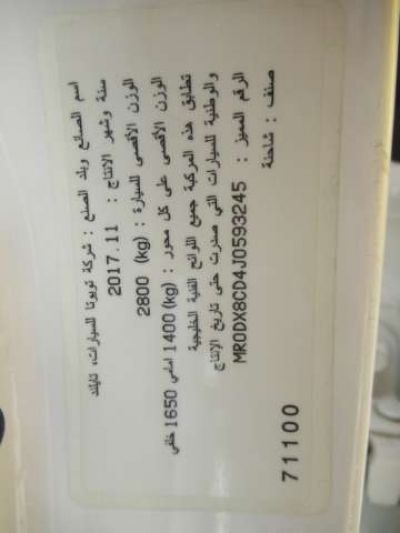 اسم الصانع وبلد الصنع : شركة تويوتا للسيارات، تايلند
سنة وشهر الانتاج : 2017.11
الوزن الأقصى للسيارة : (kg) 2800
الوزن الأقصى على كل محور : (kg) 1400 امامي 1650 خلفي
تطابق هذه المركبة جميع اللوائح الفنية الخليجية
والوطنية للسيارات التي صدرت حتى تاريخ الإنتاج
الرقم المميز : MR0DX8CD4J0593245
صنف : شاحنة
71100